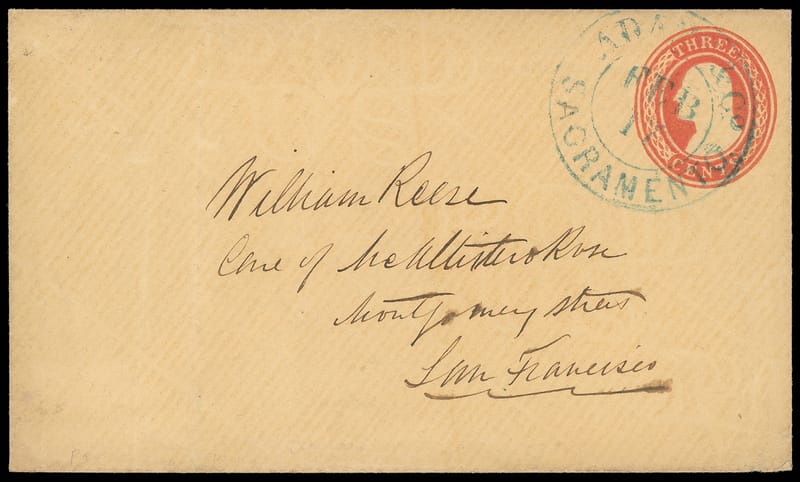 THREE
CENTS
ADAMS & Co
FEB
SACRAMENTO
William Reese
Care of McAllister & Rose
Montgomery street
San Francisco